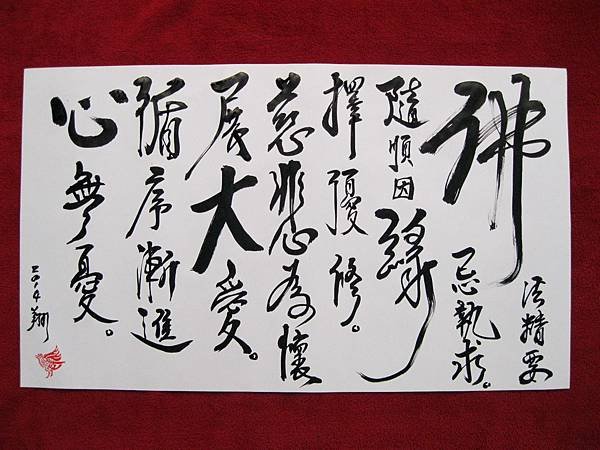 佛法精要
忌執求。
隨順因緣
擇優修。
慈悲為懷
展大愛。
循序漸進
心無憂。
翔